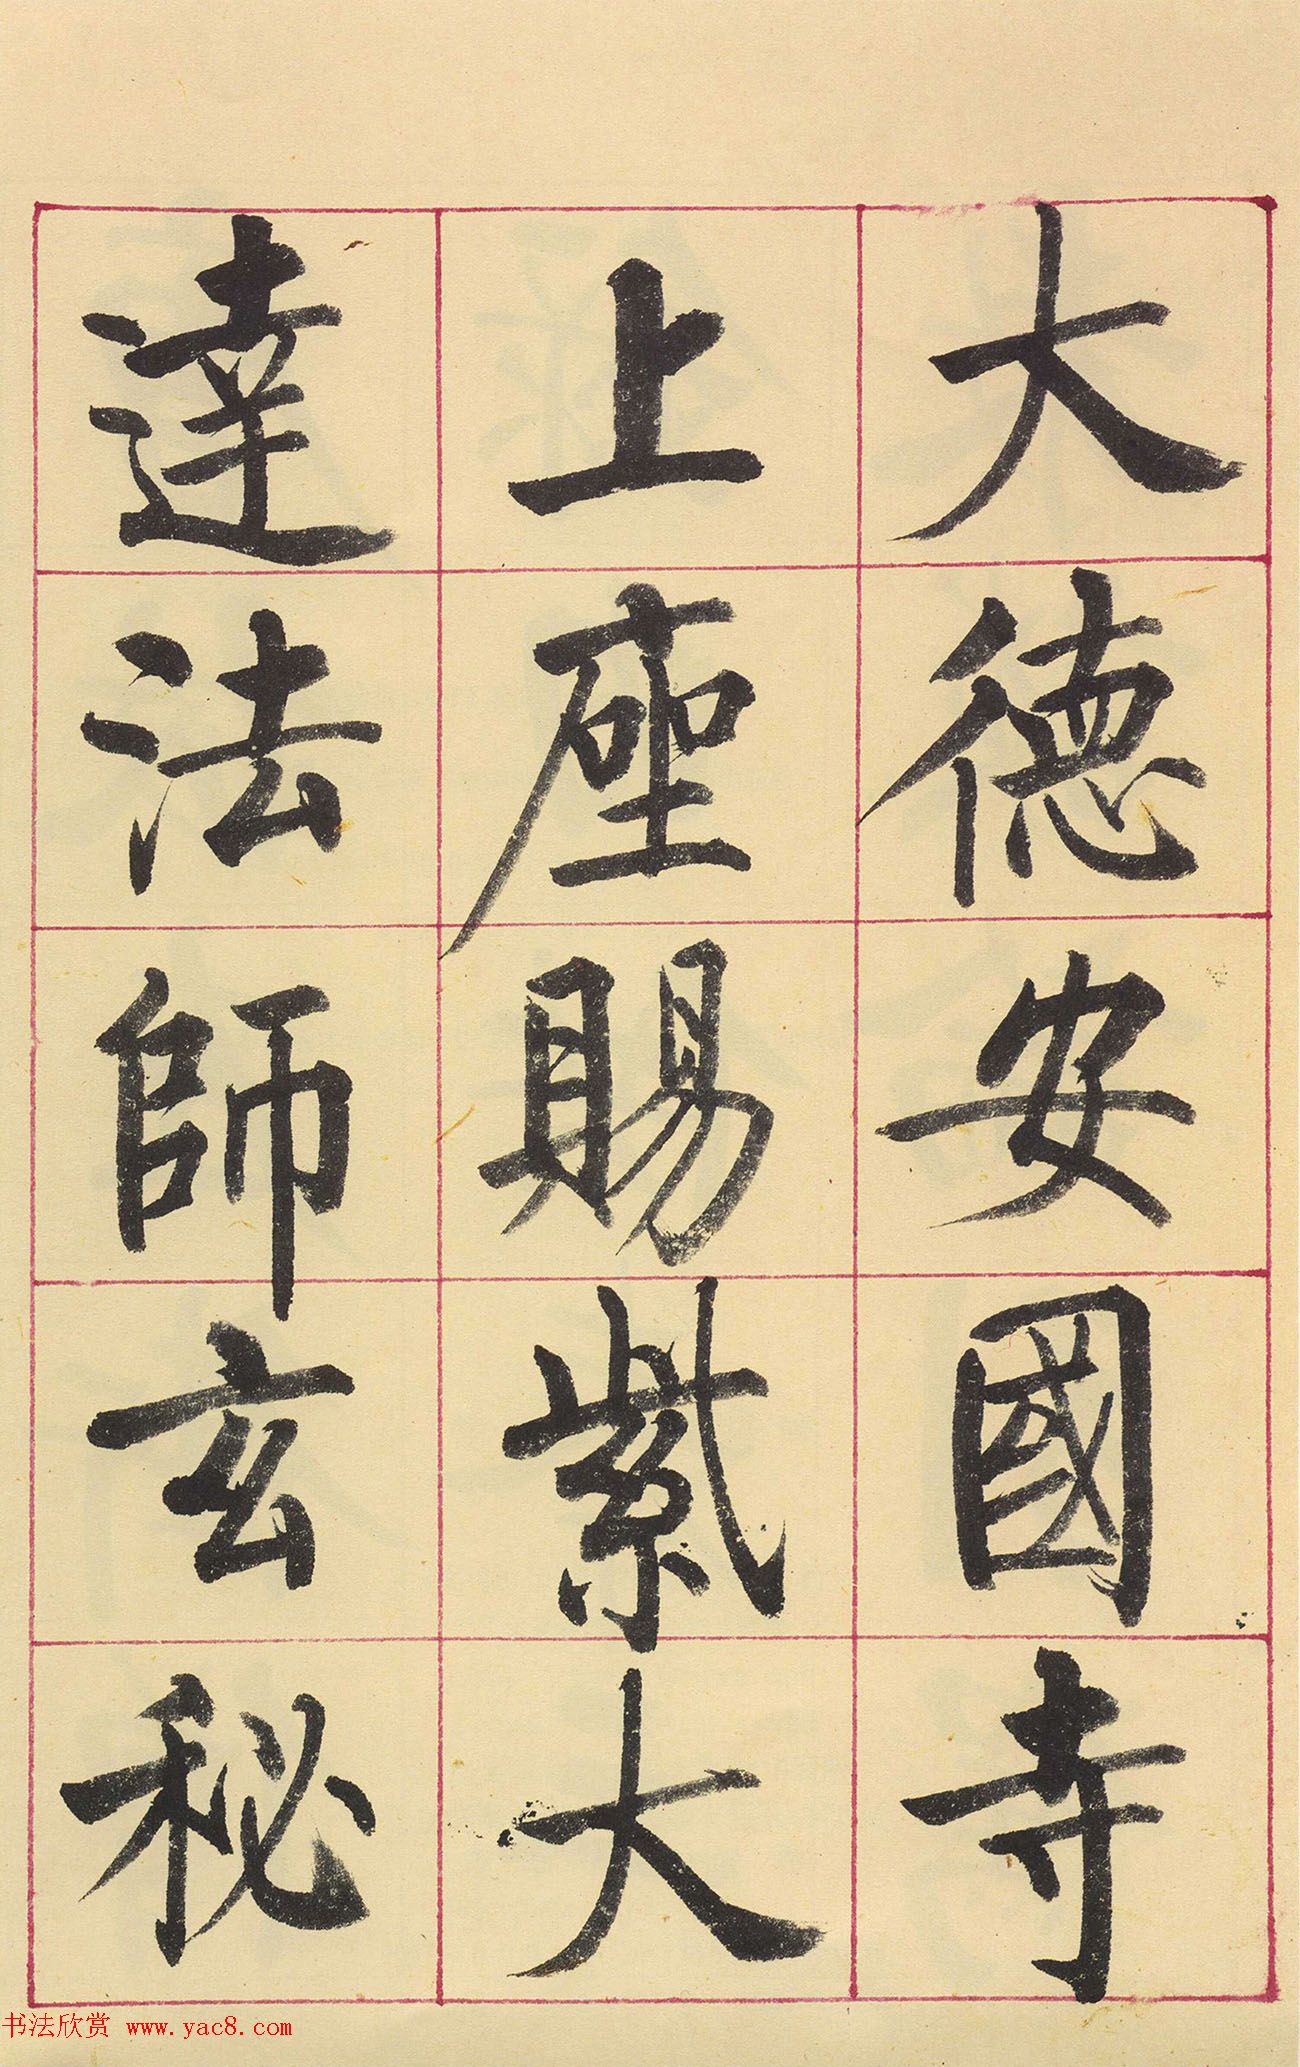 大德安國寺
上座賜紫大
達法師玄秘
书法欣赏 www.yac8.com